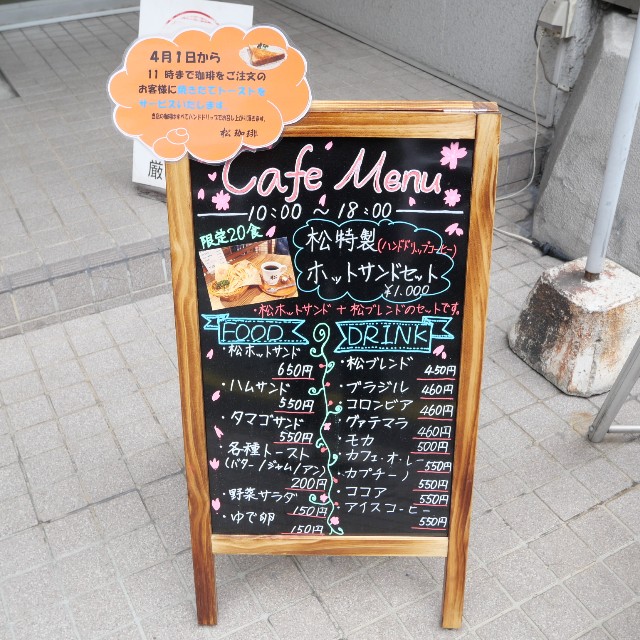 4月1日から
11時まで珈琲をご注文の
お客様に焼きたてトーストを
サービスいたします
当店の珈琲はすべてハンドドリップでお召し上がり頂けます。
松珈琲
厳
Cafe Menu
10:00 ～ 18:00
限定20食
松特製(ハンドドリップコーヒー)
ホットサンドセット
¥1.000
・松ホットサンド + 松ブレンドのセットです。
FOOD
・松ホットサンド
650円
・ハムサンド
550円
・タマゴサンド
550円
・各種トースト
(バター/ジャム/アン)
200円
・野菜サラダ
150円
・ゆで卵
150円
DRINK
・松ブレンド 450円
・ブラジル 460円
・コロンビア 460円
・グァテマラ 460円
・モカ 500円
・カフェ・オ・レ 550円
・カプチーノ 550円
・ココア 550円
・アイスコーヒー 550円